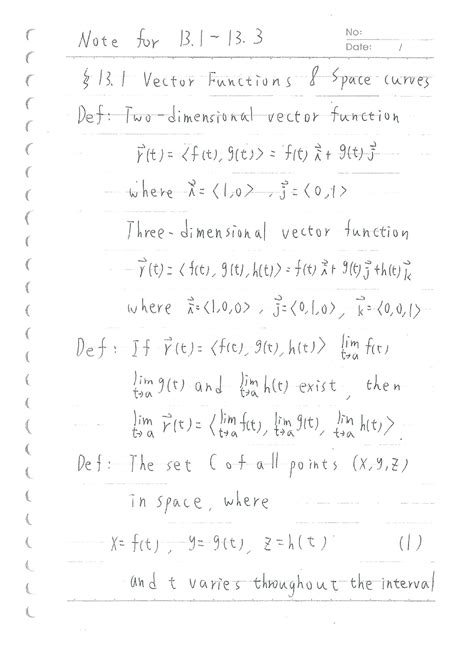 Note for 13.1 ~ 13.3
No:
Date: /
§ 13.1 Vector Functions & Space curves
Def: Two-dimensional vector function
r⃗(t) = ⟨f(t), g(t)⟩ = f(t) i⃗ + g(t) j⃗
where i⃗ = ⟨1,0⟩ , j⃗ = ⟨0,1⟩
Three-dimensional vector function
r⃗(t) = ⟨f(t), g(t), h(t)⟩ = f(t) i⃗ + g(t) j⃗ + h(t) k⃗
where i⃗ = ⟨1,0,0⟩ , j⃗ = ⟨0,1,0⟩ , k⃗ = ⟨0,0,1⟩
Def: If r⃗(t) = ⟨f(t), g(t), h(t)⟩ lim t→a f(t)
lim t→a g(t) and lim t→a h(t) exist, then
lim t→a r⃗(t) = ⟨lim t→a f(t), lim t→a g(t), lim t→a h(t)⟩.
Def: The set C of all points (x,y,z)
in space, where
x = f(t) , y = g(t) , z = h(t) (1)
and t varies throughout the interval